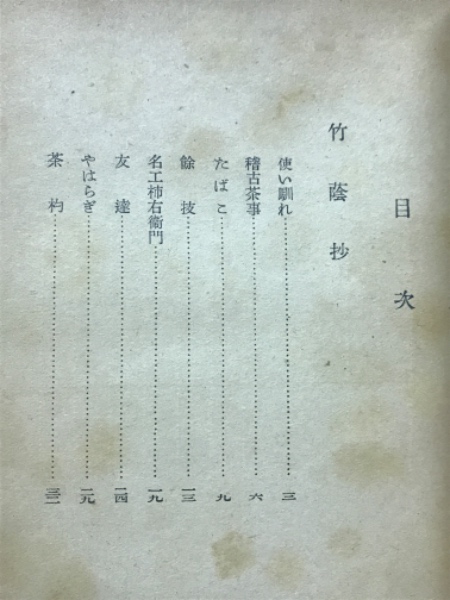 目次
竹蔭抄
使い馴れ……三
稽古茶事……六
たばこ……九
餘技……一三
名工柿右衞門……一九
友達……二四
やはらぎ……二九
茶杓……三二